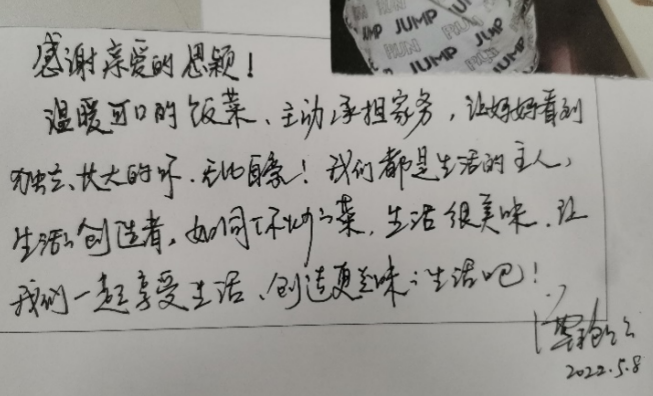 JUMP
RUN JUMP
RUN JUMP
JUMP
感谢亲爱的思颖!
温暖可口的饭菜、主动承担家务,让妈妈看到
独立、长大的你.无比自豪!我们都是生活的主人,
生活的创造者。如同你炒的菜,生活很美味.让
我们一起享受生活、创造更美味的生活吧!
2022.5.8